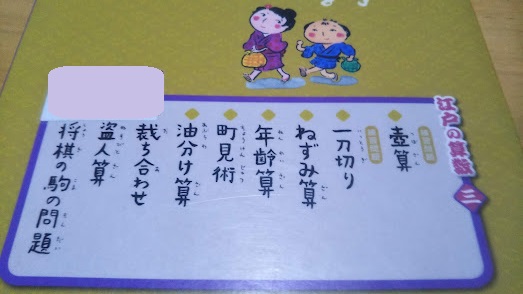 江戸の算数 三
練習問題
壺算
練習問題
一刀切り
ねずみ算
年齢算
町見術
油分け算
裁ち合わせ
盗人算
将棋の駒の問題